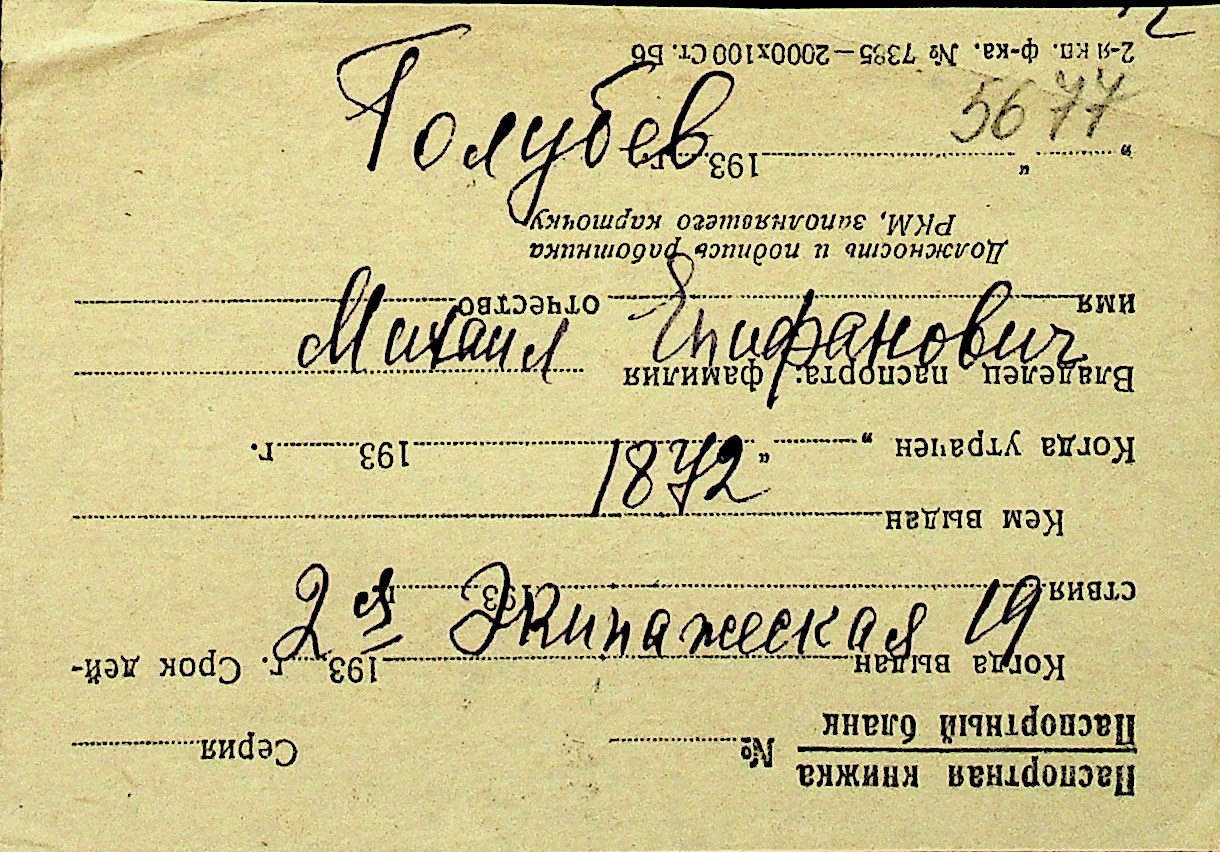 Голубев
5677
Михаил Епифанович
1872
2я Экипажеская 19
Паспортная книжка
Паспортный бланк
№ Серия
Когда выдан 193 г. Срок дей-
ствия 193 г.
Кем выдан
Когда утрачен „ “ 193 г.
Владелец паспорта: фамилия
имя отчество
Должность и подпись работника
РКМ, заполнявшего карточку
„ “ 193 г.
2-я кп. ф-ка. № 7385—2000х100 Ст. Б6